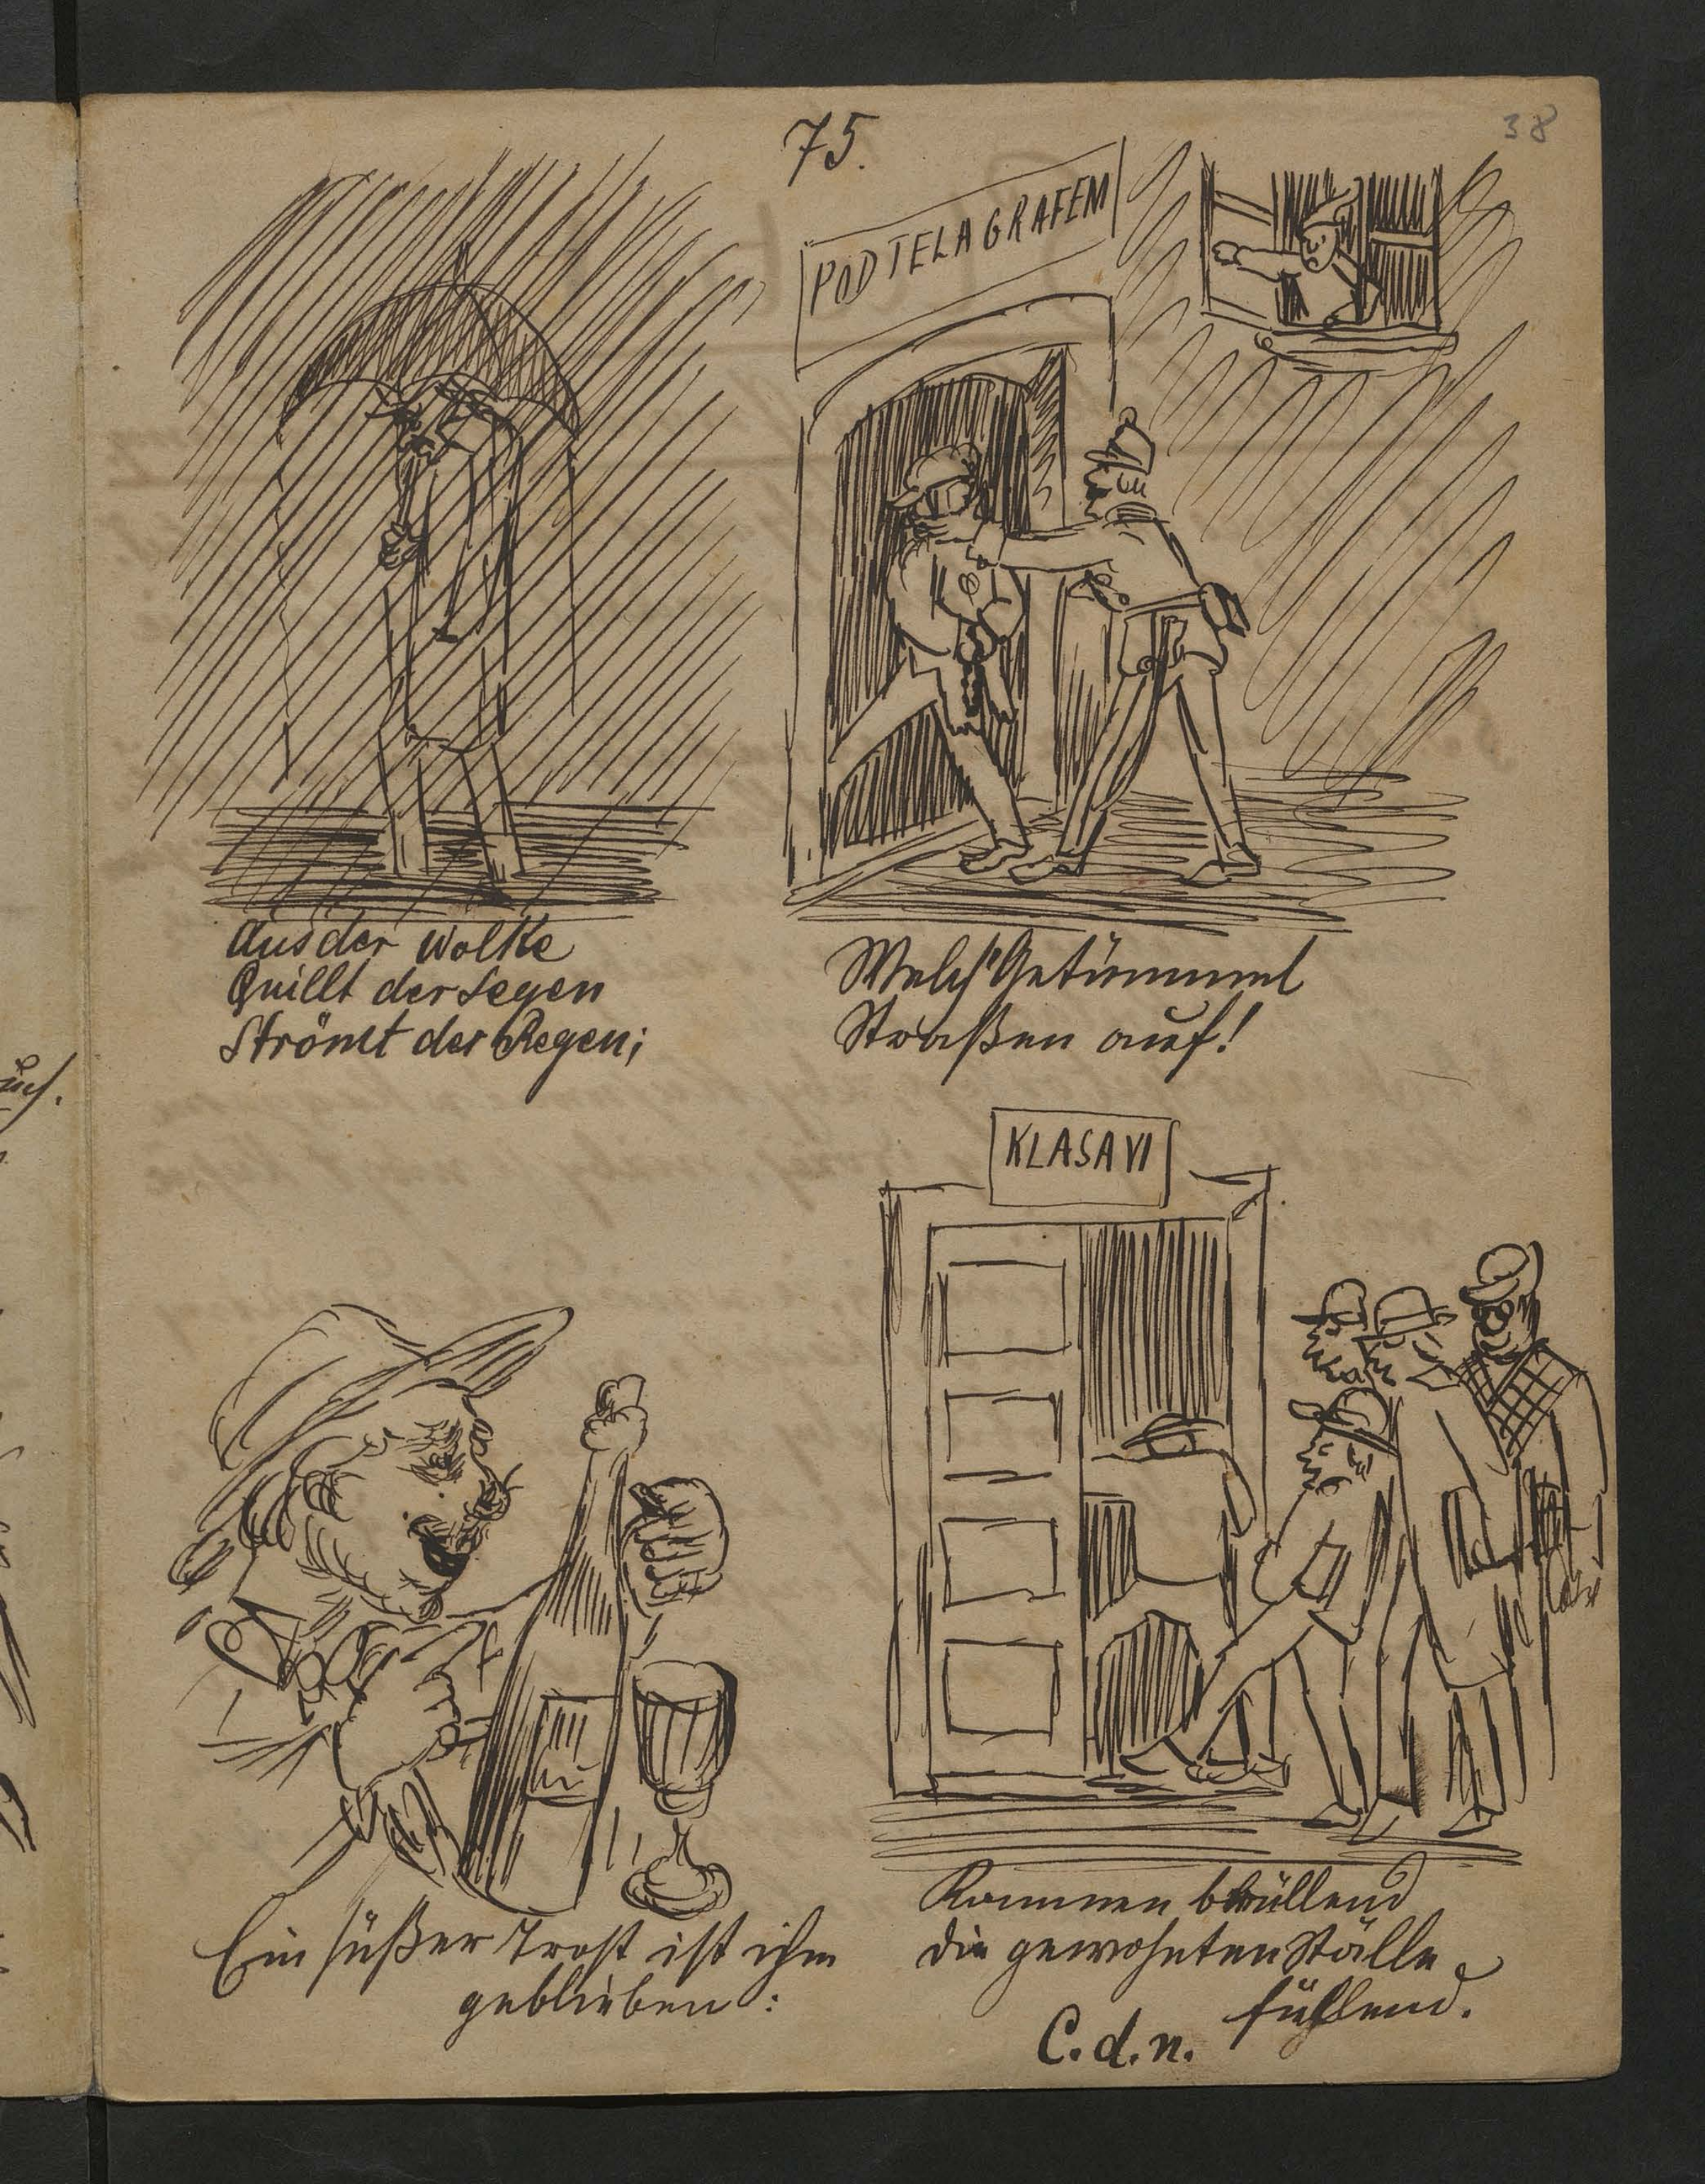 75.
38
POD TELAGRAFEM
Aus der Wolke
Quillt der Segen
Strömt der Regen;
Welch' Getümmel
Straßen auf!
KLASA VI
Ein süßer Trost ist ihm
geblieben:
Kommen brüllend
die gewohnten Ställe
füllend.
C. d. n.